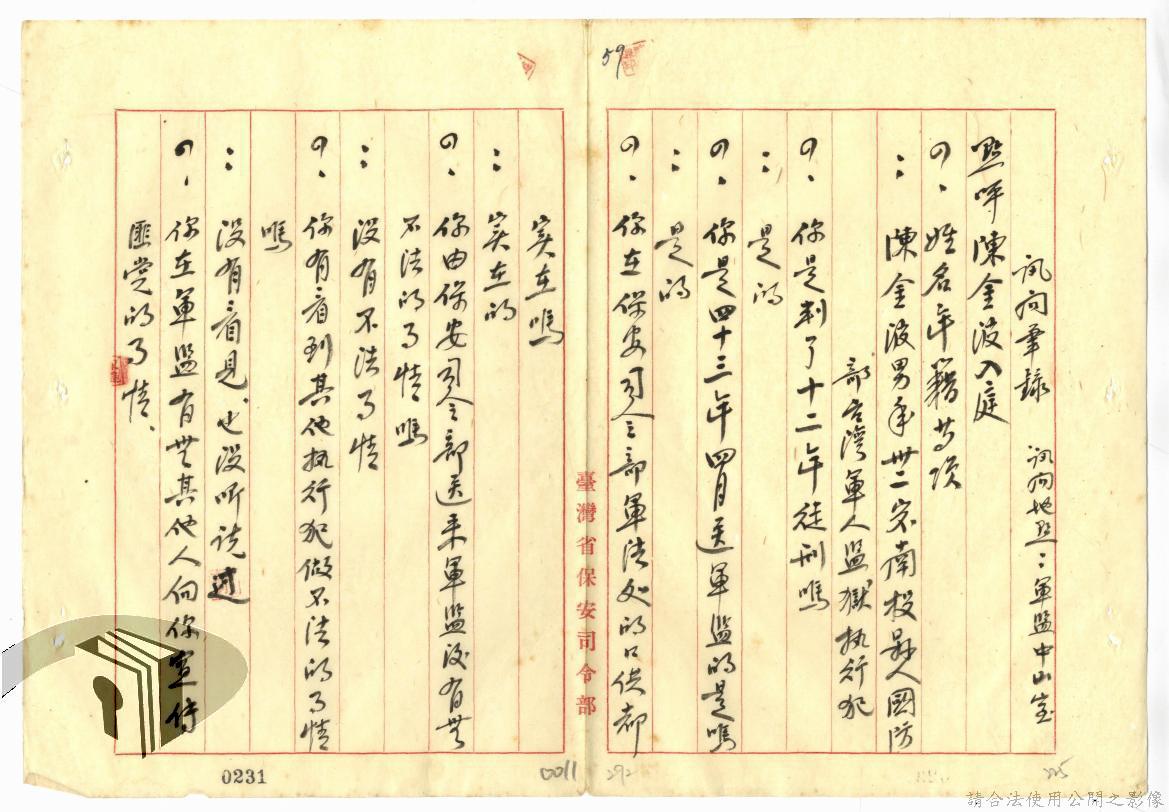 訊問筆錄　訊問地點：軍監中山室
點呼陳金波入庭
問、姓名年籍等項
：陳金波男年卅二歲南投縣人國防
部台灣軍人監獄执行犯
問、你是判了十二年徒刑嗎
：是的
問、你是四十三年四月送軍監的是嗎
：是的
問、你在保安司令部軍法処的口供都
臺灣省保安司令部
实在嗎
：实在的
問、你由保安司令部送來軍監後有無
不法的事情嗎
：没有不法事情
問、你有看到其他执行犯做不法的事情
嗎
：没有看見、也没听说过
問、你在軍监有無其他人向你宣傳
匪党的事情、
59
0231
0011
292
225
請合法使用公開之影像